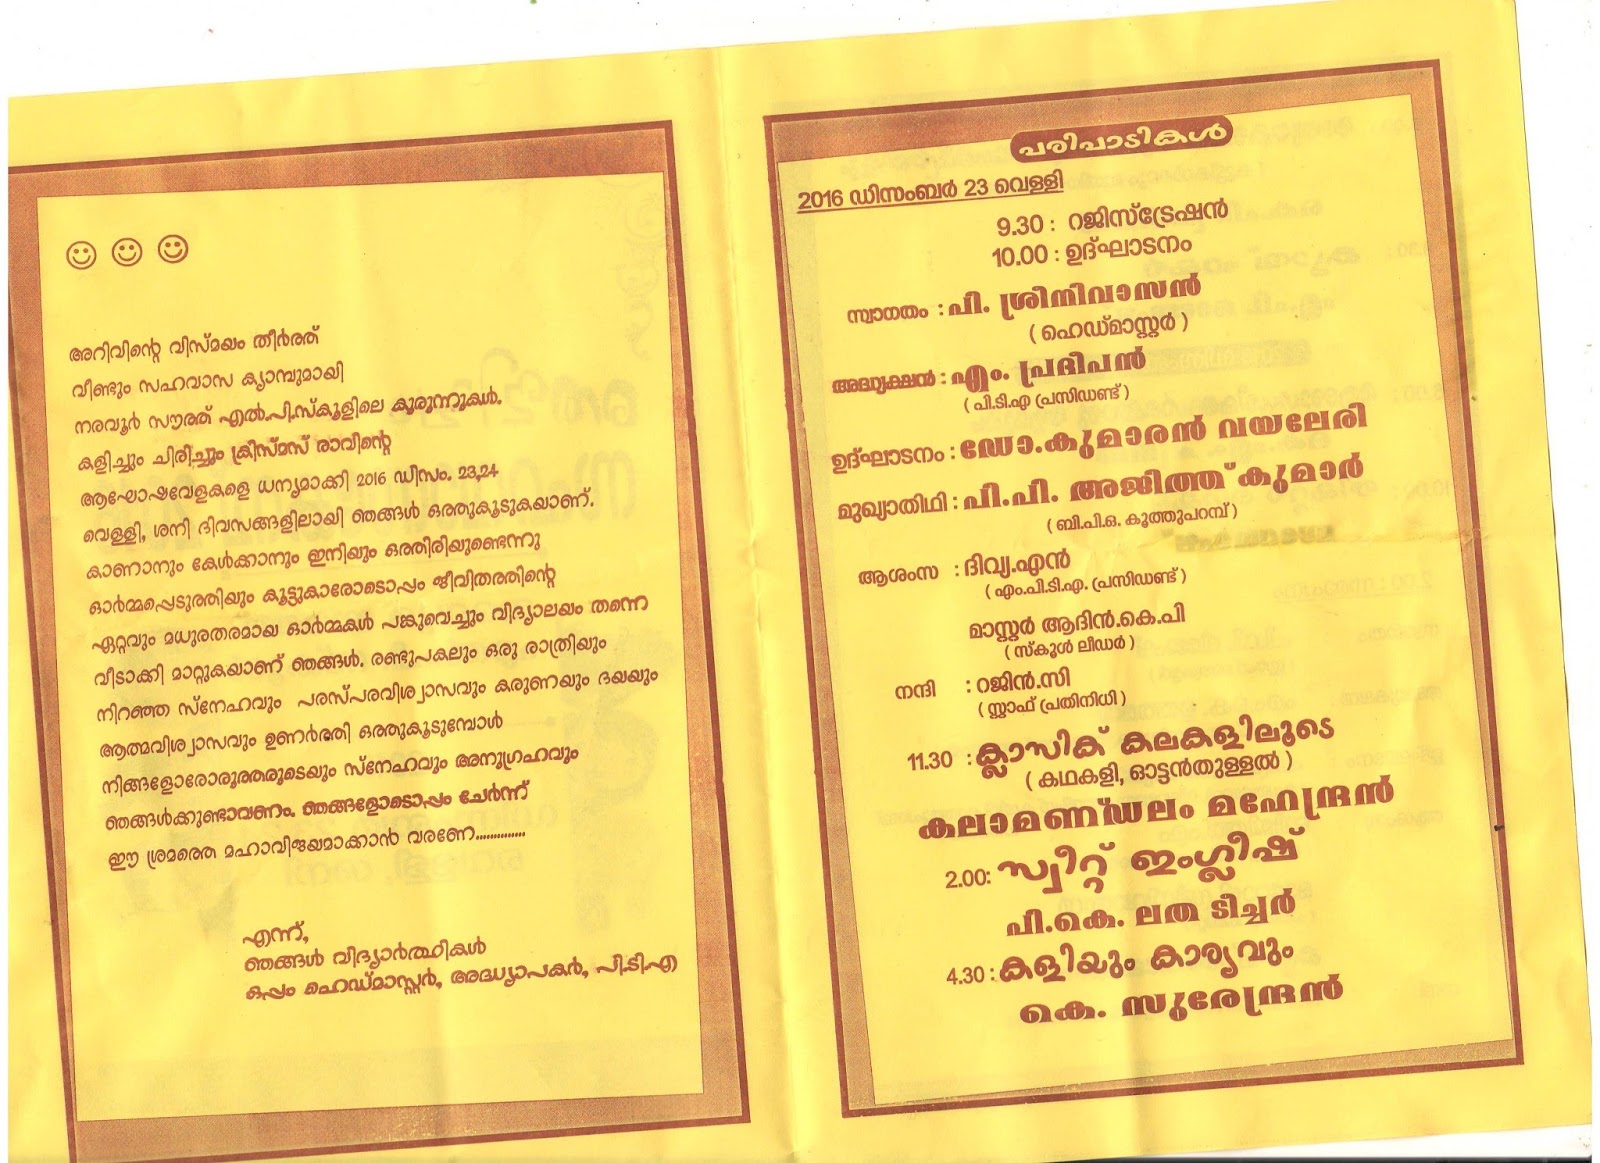 അറിവിന്റെ വിസ്മയം തീർത്ത്
വീണ്ടും സഹവാസ ക്യാമ്പുമായി
നരവൂർ സൗത്ത് എൽ.പി.സ്കൂളിലെ കുരുന്നുകൾ.
കളിച്ചും ചിരിച്ചും ക്രിസ്മസ് രാവിന്റെ
ആഘോഷവേളകളെ ധന്യമാക്കി 2016 ഡിസം. 23,24
വെള്ളി, ശനി ദിവസങ്ങളിലായി ഞങ്ങൾ ഒത്തുകൂടുകയാണ്.
കാണാനും കേൾക്കാനും ഇനിയും ഒത്തിരിയുണ്ടെന്നു
ഓർമ്മപ്പെടുത്തിയും കൂട്ടുകാരോടൊപ്പം ജീവിതത്തിന്റെ
ഏറ്റവും മധുരതരമായ ഓർമ്മകൾ പങ്കുവെച്ചും വിദ്യാലയം തന്നെ
വീടാക്കി മാറ്റുകയാണ് ഞങ്ങൾ. രണ്ടുപകലും ഒരു രാത്രിയും
നിറഞ്ഞ സ്നേഹവും പരസ്പരവിശ്വാസവും കരുണയും ദയയും
ആത്മവിശ്വാസവും ഉണർത്തി ഒത്തുകൂടുമ്പോൾ
നിങ്ങളോരോരുത്തരുടെയും സ്നേഹവും അനുഗ്രഹവും
ഞങ്ങൾക്കുണ്ടാവണം. ഞങ്ങളോടൊപ്പം ചേർന്ന്
ഈ ശ്രമത്തെ മഹാവിജയമാക്കാൻ വരണേ..............
എന്ന്,
ഞങ്ങൾ വിദ്യാർത്ഥികൾ
ഒപ്പം ഹെഡ്മാസ്റ്റർ, അദ്ധ്യാപകർ, പി.ടി.എ
പരിപാടികൾ
2016 ഡിസംബർ 23 വെള്ളി
9.30 : റജിസ്ട്രേഷൻ
10.00 : ഉദ്ഘാടനം
സ്വാഗതം : പി. ശ്രീനിവാസൻ
( ഹെഡ്മാസ്റ്റർ )
അദ്ധ്യക്ഷൻ : എം. പ്രദീപൻ
( പി.ടി.എ പ്രസിഡണ്ട് )
ഉദ്ഘാടനം : ഡോ.കുമാരൻ വയലേരി
മുഖ്യാതിഥി : പി.പി. അജിത്ത് കുമാർ
( ബി.പി.ഒ. കൂത്തുപറമ്പ് )
ആശംസ : ദിവ്യ.എൻ
( എം.പി.ടി.എ. പ്രസിഡണ്ട് )
മാസ്റ്റർ ആദിൻ.കെ.പി
( സ്കൂൾ ലീഡർ )
നന്ദി : റജിൻ.സി
( സ്റ്റാഫ് പ്രതിനിധി )
11.30 : ക്ലാസിക് കലകളിലൂടെ
( കഥകളി, ഓട്ടൻതുള്ളൽ )
കലാമണ്ഡലം മഹേന്ദ്രൻ
2.00: സ്വീറ്റ് ഇംഗ്ലീഷ്
പി.കെ. ലത ടീച്ചർ
4.30 : കളിയും കാര്യവും
കെ. സുരേന്ദ്രൻ